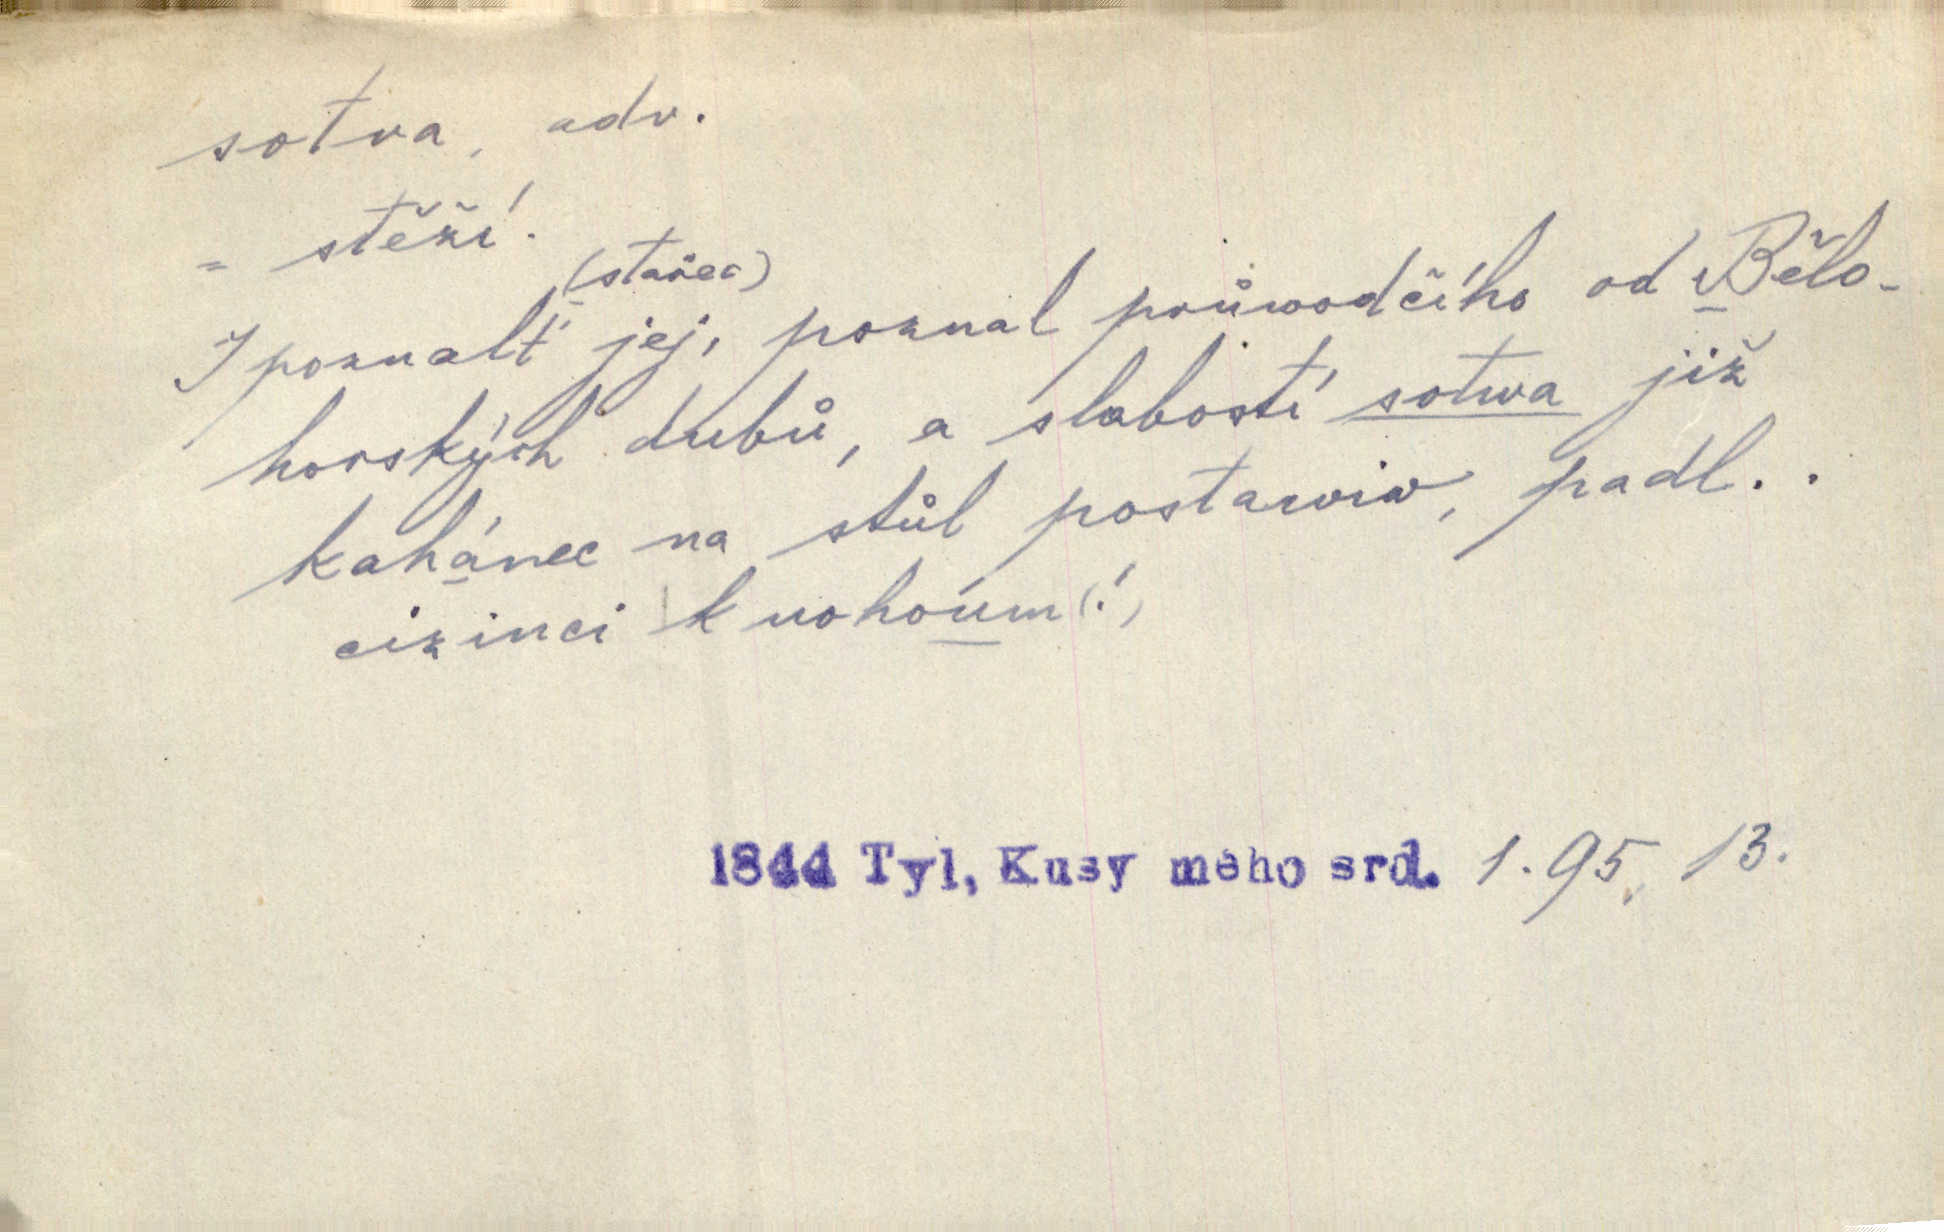 sotva, adv.
= stěží.
(stařec)
I poznalť jej, poznal průwodčího od Bělo-
horských dubů, a slabostí sotwa již
kahánec na stůl postawiw, padl..
cizinci k nohoům (!)
1844 Tyl, Kusy mého srd. 1. 95, 13.